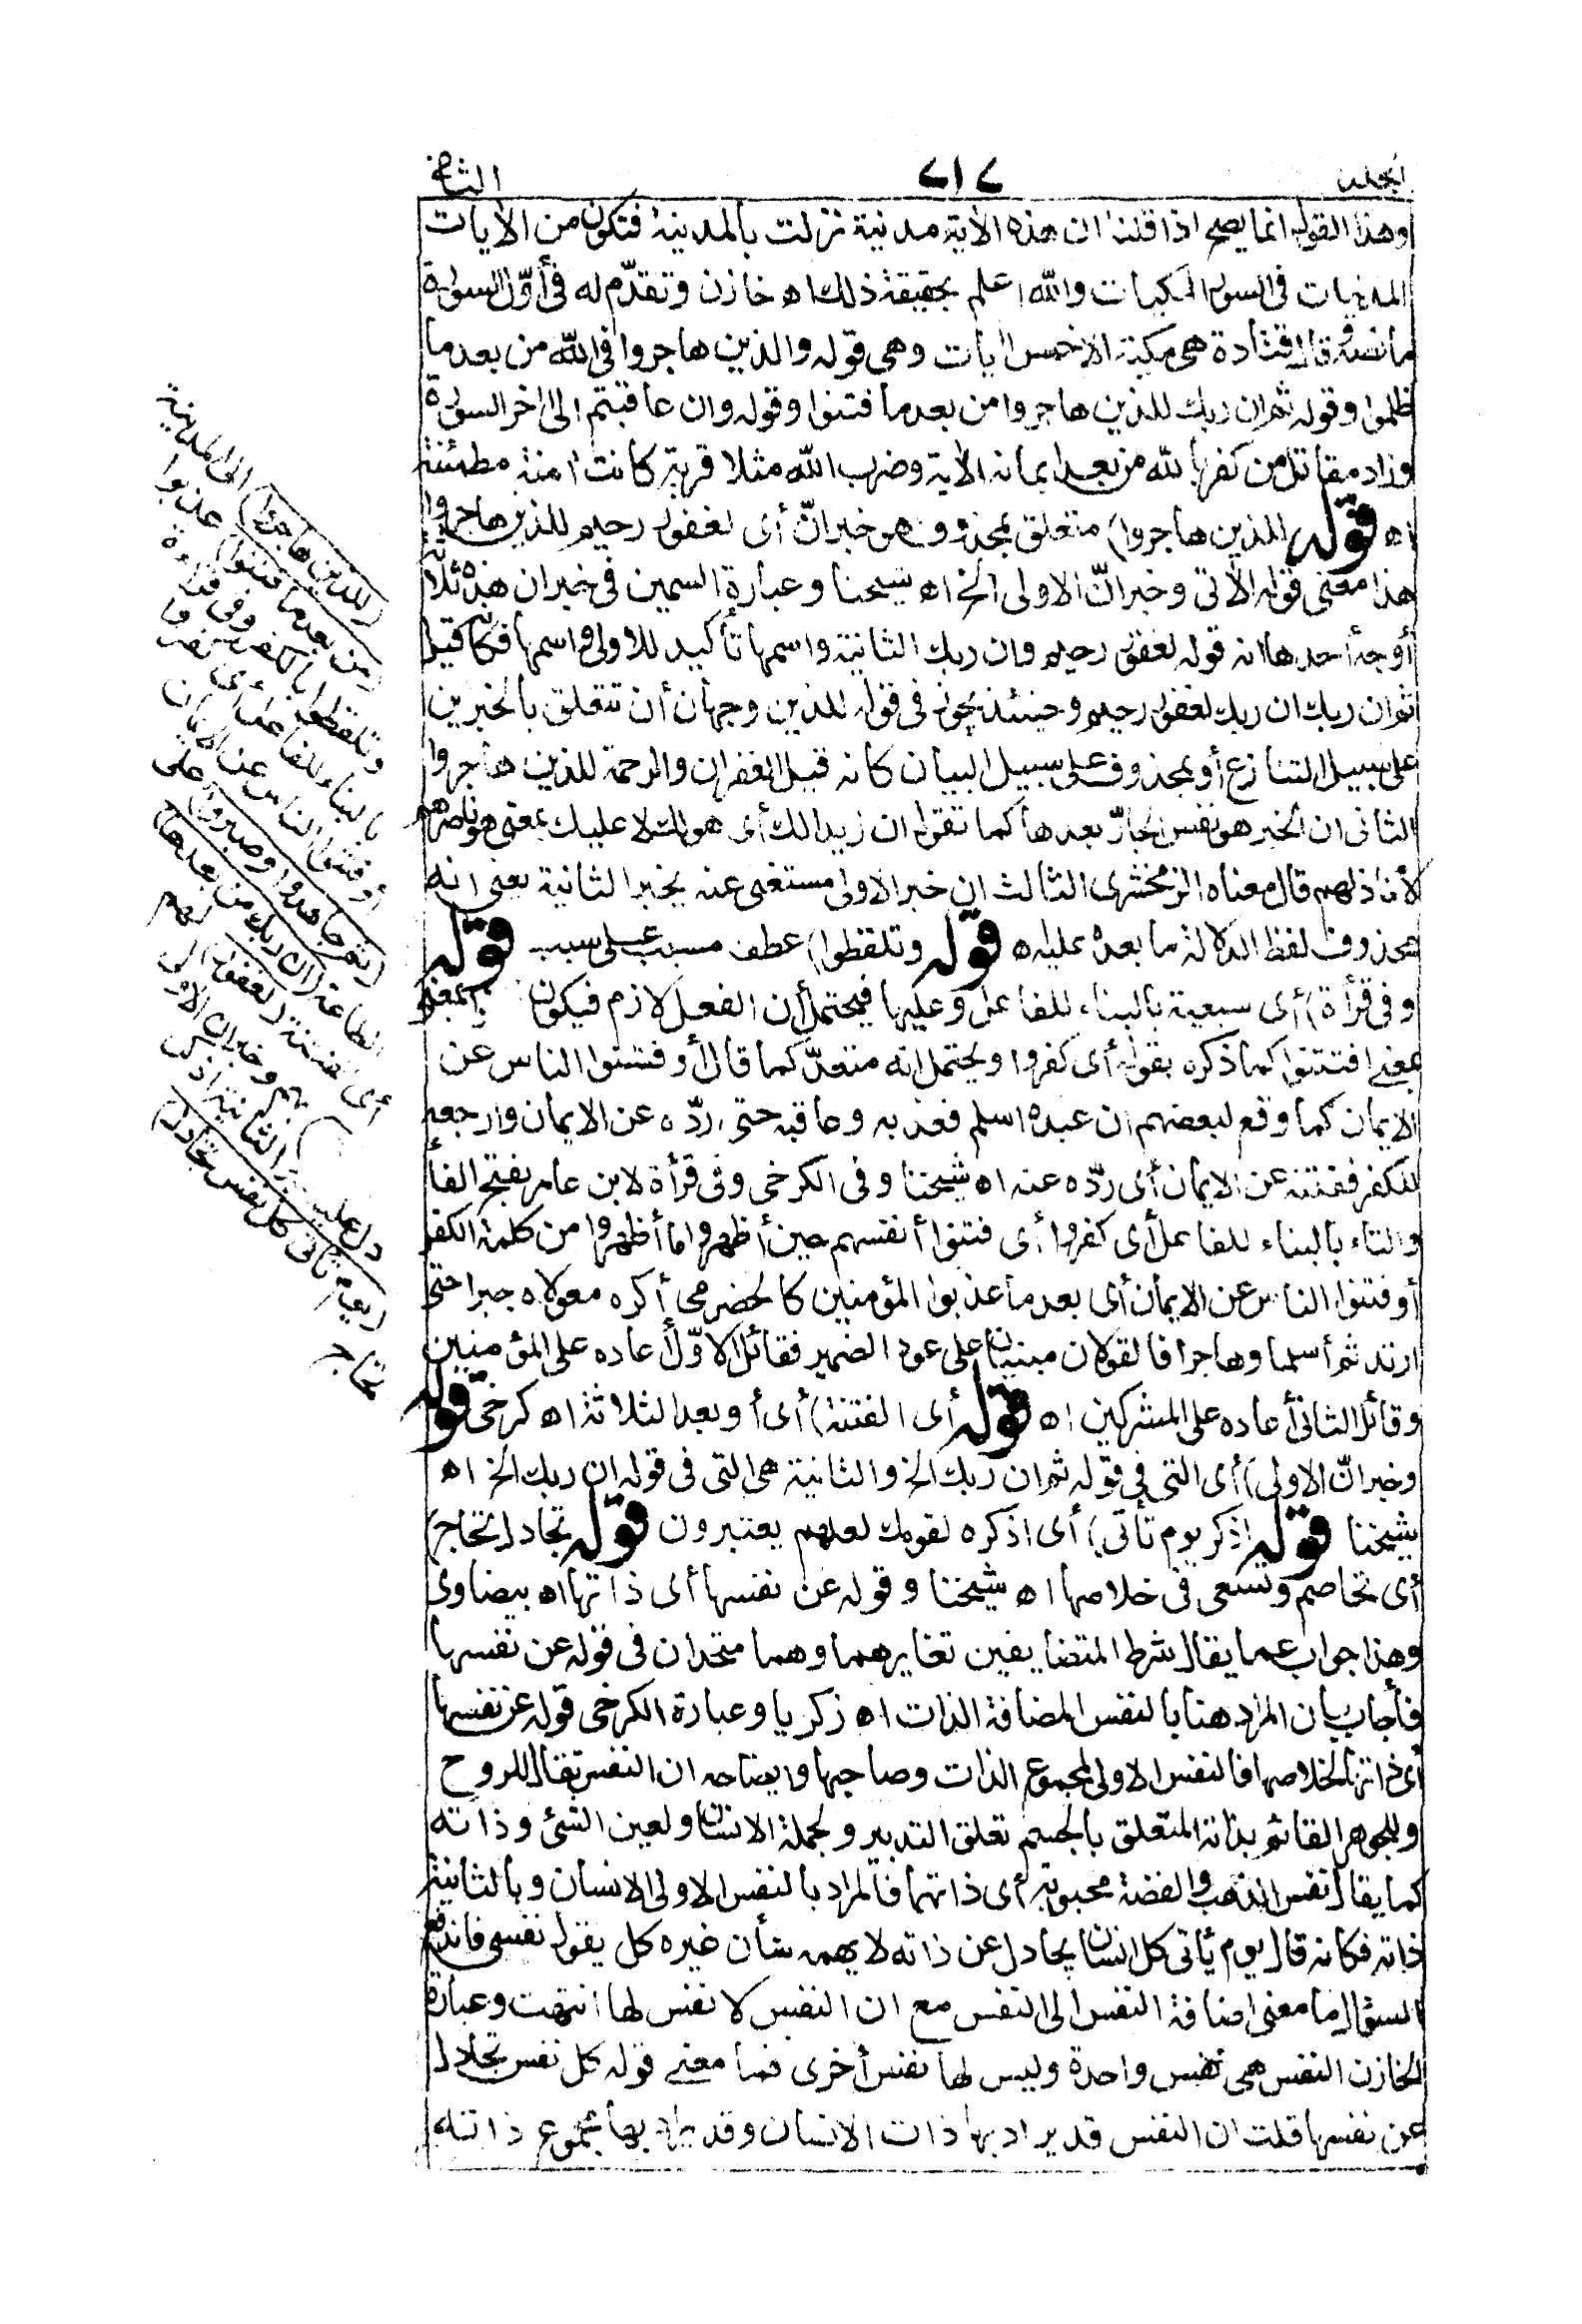 المجلد
٧١٧
الثاني
وهذا القول انما يصح اذا قلنا ان هذه الأية مدنية نزلت بالمدينة فتكون من الأيات
المدنيات فى السور المكيات والله اعلم بحقيقة ذلك اه خازن وتقدّم له فى أوّل السورة
ما نصه قال قتادة هى مكية الا خمس ايات وهى قوله والذين هاجروا فى الله من بعد ما
ظلموا وقوله ثم ان ربك للذين هاجروا من بعد ما فتنوا وقوله وان عاقبتم الى اخر السورة
وزاد مقاتل من كفر بالله من بعد ايمانه الأية وضرب الله مثلا قرية كانت امنة مطمئنة
اه قوله للذين هاجروا) متعلق بمحذوف وهو خبر انّ أى لغفور رحيم للذين هاجروا
هذا معنى قوله الأتى وخبر انّ الاولى الخ اه شيخنا وعبارة السمين فى خبر ان هذه ثلاثة
أوجه أحدها انه قوله لغفور رحيم وان ربك الثانية واسمها تأكيد للاولى واسمها فكانه قيل
ثم ان ربك ان ربك لغفور رحيم وحينئذ يجوز فى قوله للذين وجهان أن تتعلق بالخبرين
على سبيل التنازع أو بمحذوف على سبيل البيان كانه قيل الغفران والرحمة للذين هاجروا
الثانى ان الخبر هو نفس الجارّ بعدها كما تقول ان زيدا لك أى هو لك لا عليك بمعنى هو ناصرهم
لا خاذلهم قال معناه الزمخشرى الثالث ان خبر الاولى مستغنى عنه بخبر الثانية يعنى انه
محذوف لفظا لدلالة ما بعده عليه اه قوله وتلفظوا) عطف مسبب على سبب قوله
وفى قرأة) أى سبعية بالبناء للفاعل وعليها فيحتمل أن الفعل لازم فيكون
بمعنى افتتنوا كما ذكره بقوله أى كفروا ويحتمل انه متعدّ كما قال أو فتنوا الناس عن
الايمان كما وقع لبعضهم ان عبده اسلم فعذبه وعاقبه حتى ردّه عن الايمان وارجعه
للكفر ففتنه عن الايمان أى ردّه عنه اه شيخنا وفى الكرخى وفى قرأة لابن عامر بفتح الفا
والتاء بالبناء للفاعل أى كفروا أى فتنوا أنفسهم حين أظهروا ما أظهروا من كلمة الكفر
أو فتنوا الناس عن الايمان أى بعد ما عذبوا المؤمنين كالحضرمى أكره مولاه جبرا حتى
ارتد ثم أسلما وهاجرا فالقولان مبنيان على عود الضمير فقائل الاوّل أعاده على المؤمنين
وقائل الثانى أعاده على المشركين اه قوله أى الفتنة) أى أو بعد الثلاثة اه كرخى قوله
وخبر انّ الاولى) أى التى فى قوله ثم ان ربك الخ والثانية هى التى فى قوله ان ربك الخ اه
شيخنا قوله اذكر يوم تأتى) أى اذكره لقومك لعلهم يعتبرون قوله تجادل تحاج)
أى تخاصم وتسعى فى خلاصها اه شيخنا وقوله عن نفسها أى ذاتها اه بيضاوى
وهذا جواب عما يقال شرط المتضايفين تغايرهما وهما متحدان فى قوله عن نفسها
فأجاب بأن المراد هنا بالنفس المضافة الذات اه زكريا وعبارة الكرخى قوله عن نفسها
أى ذاتها لخلاصها فالنفس الاولى لمجموع الذات وصاحبها وايضاحه ان النفس تقال للروح
وللجوهر القائم بذاته المتعلق بالجسم تعلق التدبير ولجملة الانسان ولعين الشئ وذاته
كما يقال نفس الذهب والفضة محبوبة أى ذاتهما فالمراد بالنفس الاولى الانسان وبالثانية
ذاته فكانه قال يوم يأتى كل انسان يجادل عن ذاته لا يهمه شأن غيره كل يقول نفسى فاندفع
السؤال ما معنى اضافة النفس الى النفس مع ان النفس لا نفس لها انتهت وعبارة
الخازن النفس هى نفس واحدة وليس لها نفس أخرى فما معنى قوله كل نفس تجادل
عن نفسها قلت ان النفس قد يراد بها ذات الانسان وقد يراد بها مجموع ذاته
(للذين هاجروا) الى المدينة
(من بعد ما فتنوا) عذبوا
وتلفظوا بالكفر وفى قراءة
بالبناء للفاعل أى كفروا
أو فتنوا الناس عن الايمان
(ثم جاهدوا وصبروا) على
الطاعة (ان ربك من بعدها)
أى الفتنة (لغفور) لهم
بهم وخبر ان الاولى
دل عليه الثانية اذكر
(يوم تأتى كل نفس تجادل)
تحاج